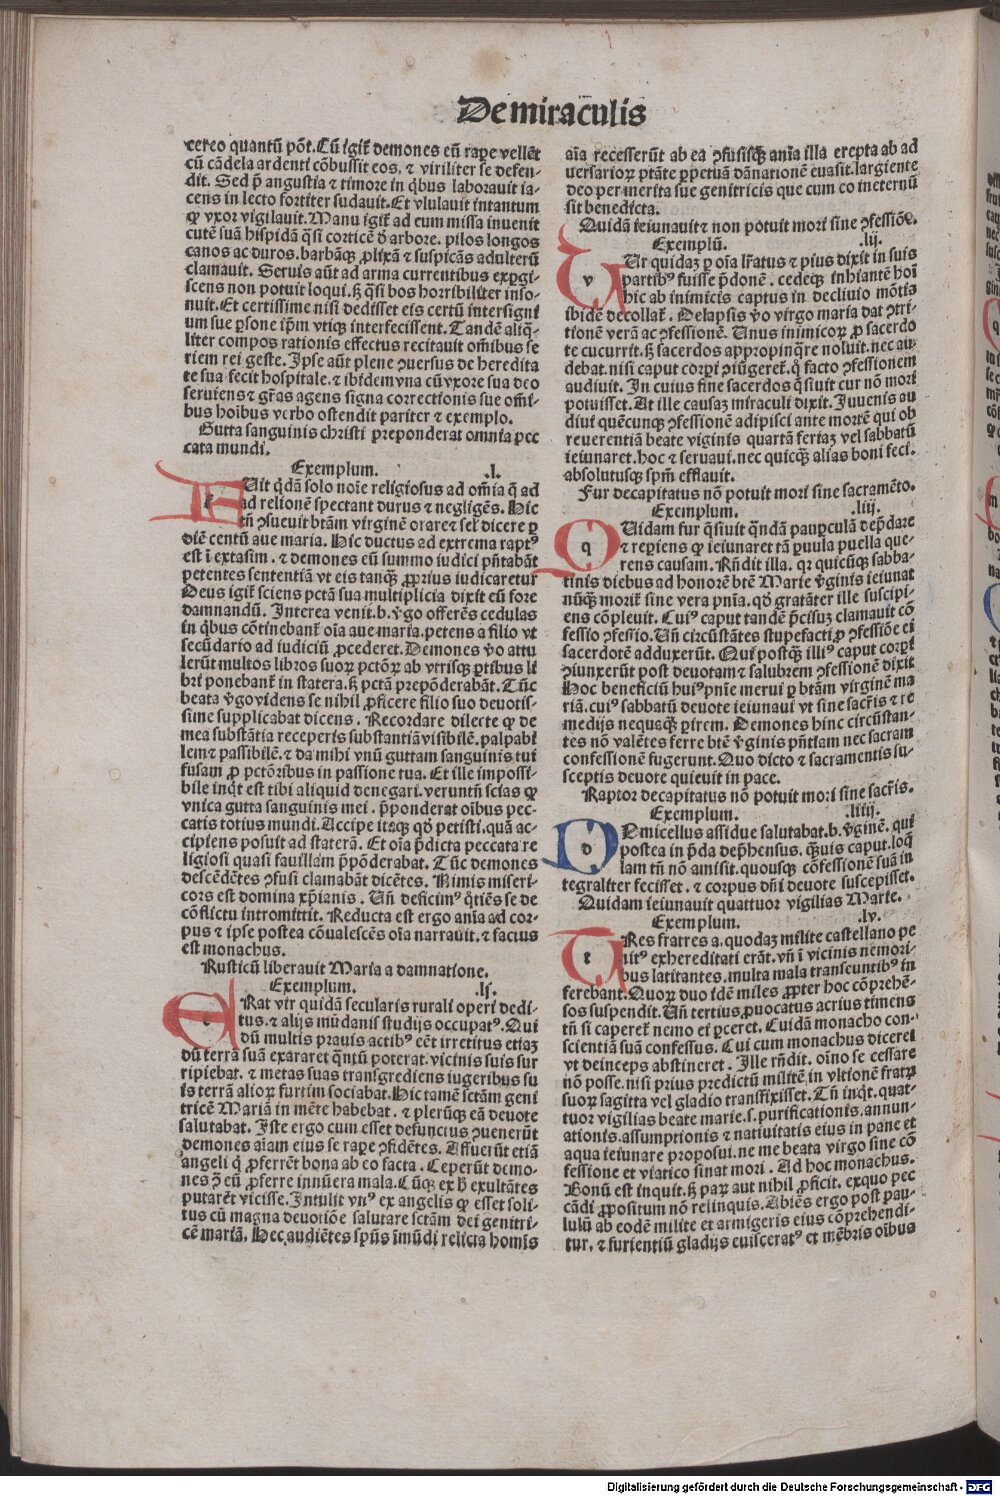 De miraculis
cereo quantū põt. Cū igiť demones eū raꝑe vellēt
cū cādela ardenti cōbussit eos, ⁊ viriliter se defen-
dit. Sed p̄ angustia ⁊ timore in q̄bus laborauit ia-
cens in lecto fortiter sudauit. Et vlulauit intantum
ꝙ vxor vigilauit. Manu igiť ad eum missa inuenit
cutē suā hispidā q̄si corticē d̄ arbore. pilos longos
canos ac duros. barbāqꝫ ꝓlixā ⁊ suspicās adulterū
clamauit. Seruis aūt ad arma currentibus exꝑgi-
scens non potuit loqui. sꝫ q̄si bos horribiliter inso-
nuit. Et certissime nisi dedisset eis certū intersigni
um sue ꝑsone ip̄m vtiqꝫ interfecissent. Tandē aliq̄-
liter compos rationis effectus recitauit om̄ibus se
riem rei geste. Ipse aūt plene ꝯuersus de heredita
te sua fecit hospitale. ⁊ ibidem vna cū vxore sua deo
seruiens ⁊ gr̄as agens signa correctionis sue om̄i-
bus hoibus verbo ostendit pariter ⁊ exemplo.
Gutta sanguinis christi preponderat omnia pec
cata mundi.
Exemplum. .l.
FUit q̄dā solo noīe religiosus ad om̄ia q̄ ad
ad relionē spectant durus ⁊ negligēs. Hic
tn̄ ꝯsueuit btām virginē orare ⁊ seꝉ dicere ꝑ
diē centū aue maria. Hic ductus ad extrema raptꝰ
est ī extasim. ⁊ demones eū summo iudici pn̄tabāt
petentes sententiā vt eis tanqꝫ ꝓprius iudicaretur
Deus igiť sciens pctā sua multiplicia dixit eū fore
damnandū. Interea venit .b. v̄go offerēs cedulas
in q̄bus cōtinebanť oīa aue maria. petens a filio vt
secūdario ad iudiciū ꝓcederet. Demones v̄o attu
lerūt multos libros suoꝝ pctōꝝ ab vtrisqꝫ ꝑtibus li
bri ponebanť in statera. sꝫ pctā prepōderabāt. Tūc
beata v̄go videns se nihil ꝓficere filio suo deuotis-
sime supplicabat dicens. Recordare dilecte ꝙ de
mea substātia receperis substantiā visibilē. palpabi
lem ⁊ passibilē. ⁊ da mihi vnū guttam sanguinis tui
fusam ꝓ pctōribus in passione tua. Et ille impossi-
bile inq̇t est tibi aliquid denegari. veruntn̄ scias ꝙ
vnica gutta sanguinis mei. p̄ponderat oībus pec-
catis totius mundi. Accipe itaqꝫ qd̄ petisti. quā ac-
cipiens posuit ad staterā. Et oīa p̄dicta peccata re
ligiosi quasi fauillam p̄pōderabat. Tūc demones
descēdētes ꝯfusi clamabāt dicētes. Nimis miseri-
cors est domina xp̄ianis. Vn̄ deficimꝰ q̄tiēs se de
cōflictu intromittit. Reducta est ergo anīa ad cor-
pus ⁊ ipse postea cōualescēs oīa narrauit. ⁊ factus
est monachus.
Rusticū liberauit Maria a damnatione.
Exemplum. .lj.
ERat vir quidā secularis rurali operi dedi-
tus. ⁊ alijs mūdanis studijs occupatꝰ. Qui
dū multis prauis actibꝰ eēt irretitus etiaꝫ
dū terrā suā exararet q̄ntū poterat. vicinis suis sur
ripiebat. ⁊ metas suas transgrediens iugeribus su
is terrā alioꝝ furtim sociabat. Hic tamē sctām geni
tricē Mariā in mēte habebat. ⁊ plerūqꝫ eā deuote
salutabat. Iste ergo cum esset defunctus ꝯuenerūt
demones aīam eius se raꝑe ꝯfidētes. Affuerūt etiā
angeli q̄ ꝓferrēt bona ab eo facta. Ceperūt demo-
nes ꝯ̄ eū ꝓferre innūera mala. Cūqꝫ ex hͦ exultātes
putarēt vicisse. Intulit vnꝰ ex angelis ꝙ esset soli-
tus cū magna deuotiōe salutare sctām dei genitri-
cē mariā. Hec audiētes spūs īmūdi relicta homīs
aīa recesserūt ab ea ꝯfusisqꝫ anīa illa erepta ab ad
uersarioꝝ ptāte ꝑpetuā dānationē euasit. largiente
deo per merita sue genitricis que cum eo ineternū
sit benedicta.
Quidā ieiunauit ⁊ non potuit mori sine ꝯfessiōe.
Exemplū. .lij.
VIr quidaꝫ ꝑ oīa lr̄atus ⁊ pius dixit in suis
partibꝰ fuisse p̄donē. cedeqꝫ inhiantē hoīm
hic ab inimicis captus in decliuio mōtis
ibidē decollať. Relapsis v̄o virgo maria dat ꝯtri-
tionē verā ac ꝯfessionē. Unus inimicoꝝ ꝓ sacerdo
te cucurrit. sꝫ sacerdos appropinq̄re noluit. nec au-
debat. nisi caput corpi ꝯiūgereť. q̊ facto ꝯfessionem
audiuit. In cuius fine sacerdos q̄siuit cur nō mori
potuisset. At ille causaꝫ miraculi dixit. Juuenis au
diui quēcunqꝫ ꝯfessionē adipisci ante mortē qui ob
reuerentiā beate viginis quartā feriaꝫ vel sabbatū
ieiunaret. hoc ⁊ seruaui. nec quicqꝫ alias boni feci.
absolutusqꝫ spm̄ efflauit.
Fur decapitatus nō potuit mori sine sacramēto.
Exemplum. .liij.
QUidam fur q̄siuit q̄ndā pauꝑculā dep̄dare
⁊ reperiens ꝙ ieiunaret tā ꝑuula puella que-
rens causam. Rn̄dit illa. qꝛ quicūqꝫ sabba-
tinis diebus ad honorē btē Marie v̄ginis ieiunat
nūqꝫ moriť sine vera pnīa. qd̄ gratāter ille suscipi-
ens cōpleuit. Cuiꝰ caput tandē p̄cisuꝫ clamauit cō
fessio ꝯfessio. Vn̄ circūstātes stupefacti ꝓ ꝯfessiōe ei
sacerdotē adduxerūt. Qui postqꝫ illiꝰ caput corpi
ꝯiunxerūt post deuotam ⁊ salubrem ꝯfessionē dixit
Hoc beneficiū huiꝰ pnīe merui ꝑ btām virginē ma
riā. cuiꝰ sabbatū deuote ieiunaui vt sine sacr̄is ⁊ re
medijs nequaqꝫ ꝑirem. Demones hinc circūstan-
tes nō valētes ferre btē v̄ginis pn̄tiam nec sacram
confessionē fugerunt. Quo dicto ⁊ sacramentis su-
sceptis deuote quieuit in pace.
Raptor decapitatus nō potuit mori sine sacr̄is.
Exemplum. .liiij.
DOmicellus assidue salutabat .b. v̄ginē. qui
postea in p̄da dep̄hensus. q̄uis caput. loq̄
lam tn̄ nō amisit. quousqꝫ cōfessionē suā in
tegraliter fecisset. ⁊ corpus dn̄i deuote suscepisset.
Quidam ieiunauit quattuor vigilias Marie.
Exemplum. .lv.
TRes fratres a quodaꝫ milite castellano pe
nitꝰ exhereditati erāt. vn̄ ī vicinis nemori-
bus latitantes. multa mala transeuntibꝰ in
ferebant. Quoꝝ duo idē miles ꝓpter hoc cōprehē-
sos suspendit. Vn̄ tertius ꝓuocatus acrius timens
tn̄ si caperet nemo ei ꝑceret. Cuidā monacho con-
scientiā suā confessus. Cui cum monachus diceret
vt deinceps abstineret. Ille rn̄dit. oīno se cessare
nō posse. nisi prius predictū militē in vltionē fratꝝ
suoꝝ sagitta vel gladio transfixisset. Tn̄ inq̇t. quat-
tuor vigilias beate marie .s. purificationis. annun-
ationis. assumptionis ⁊ natiuitatis eius in pane et
aqua ieiunare proposui. ne me beata virgo sine cō
fessione et viatico sinat mori. Ad hoc monachus.
Bonū est inquit. sꝫ paꝝ aut nihil ꝓficit. exquo pec
cādi ꝓpositum nō relinquis. Abiēs ergo post pau-
lulū ab eodē milite et armigeris eius cōprehendi-
tur. ⁊ furientiū gladijs euisceratꝰ et mēbris oībus
Digitalisierung gefördert durch die Deutsche Forschungsgemeinschaft - DFG